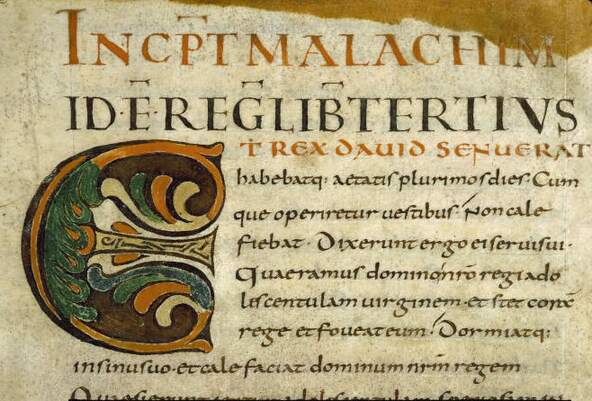 INCPT MALACHIM
ID·E·REG LIB TERTIVS
ET REX DAUID SENUERAT
habebatq: aetatis plurimos dies· Cum
que operiretur uestibus· Non cale
fiebat· Dixerunt ergo ei serui sui·
Quaeramus domino nro regi ado
liscentulam uirginem· et stet cora
rege et foueat eum· Dormiatq:
in sinu suo· et calefaciat dominum nrm regem